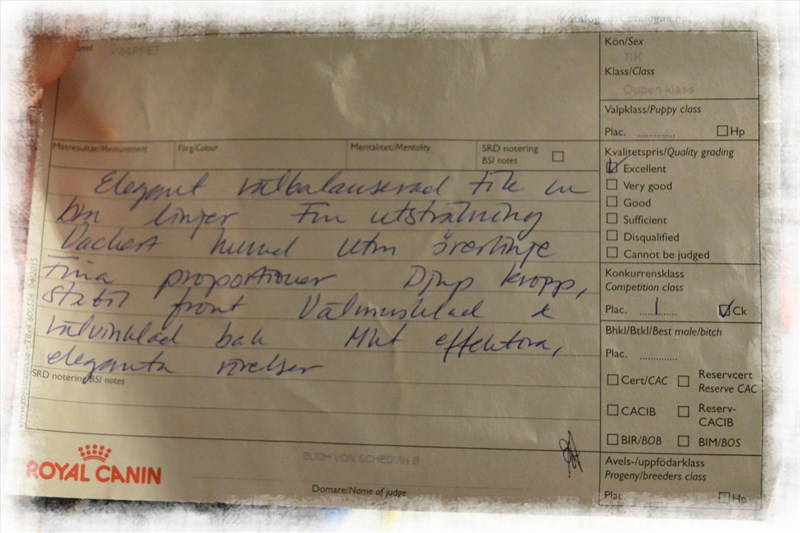 WHIPPET
Kön/Sex
TIK
Klass/Class
Öppen klass
Valpklass/Puppy class
Plac. ............ Hp
Måttresultat/Measurement Färg/Colour Mentalitet/Mentality SRD notering
BSI notes
Kvalitetspris/Quality grading
Excellent
Very good
Good
Sufficient
Disqualified
Cannot be judged
Elegant välbalanserad tik
bra linjer Fin utstrålning
Vackert huvud överlinje
Fina proportioner Djup kropp,
stabil front Välmusklad &
välvinklad bak Mkt effektiva,
eleganta rörelser
Konkurrensklass
Competition class
Plac. 1 Ck
Bhkl/Btkl/Best male/bitch
Plac. ............
Cert/CAC Reservcert
Reserve CAC
CACIB Reserv-
CACIB
BIR/BOB BIM/BOS
SRD notering/BSI notes
Avels-/uppfödarklass
Progeny/breeders class
Plac. Hp
ROYAL CANIN
Domare/Name of judge